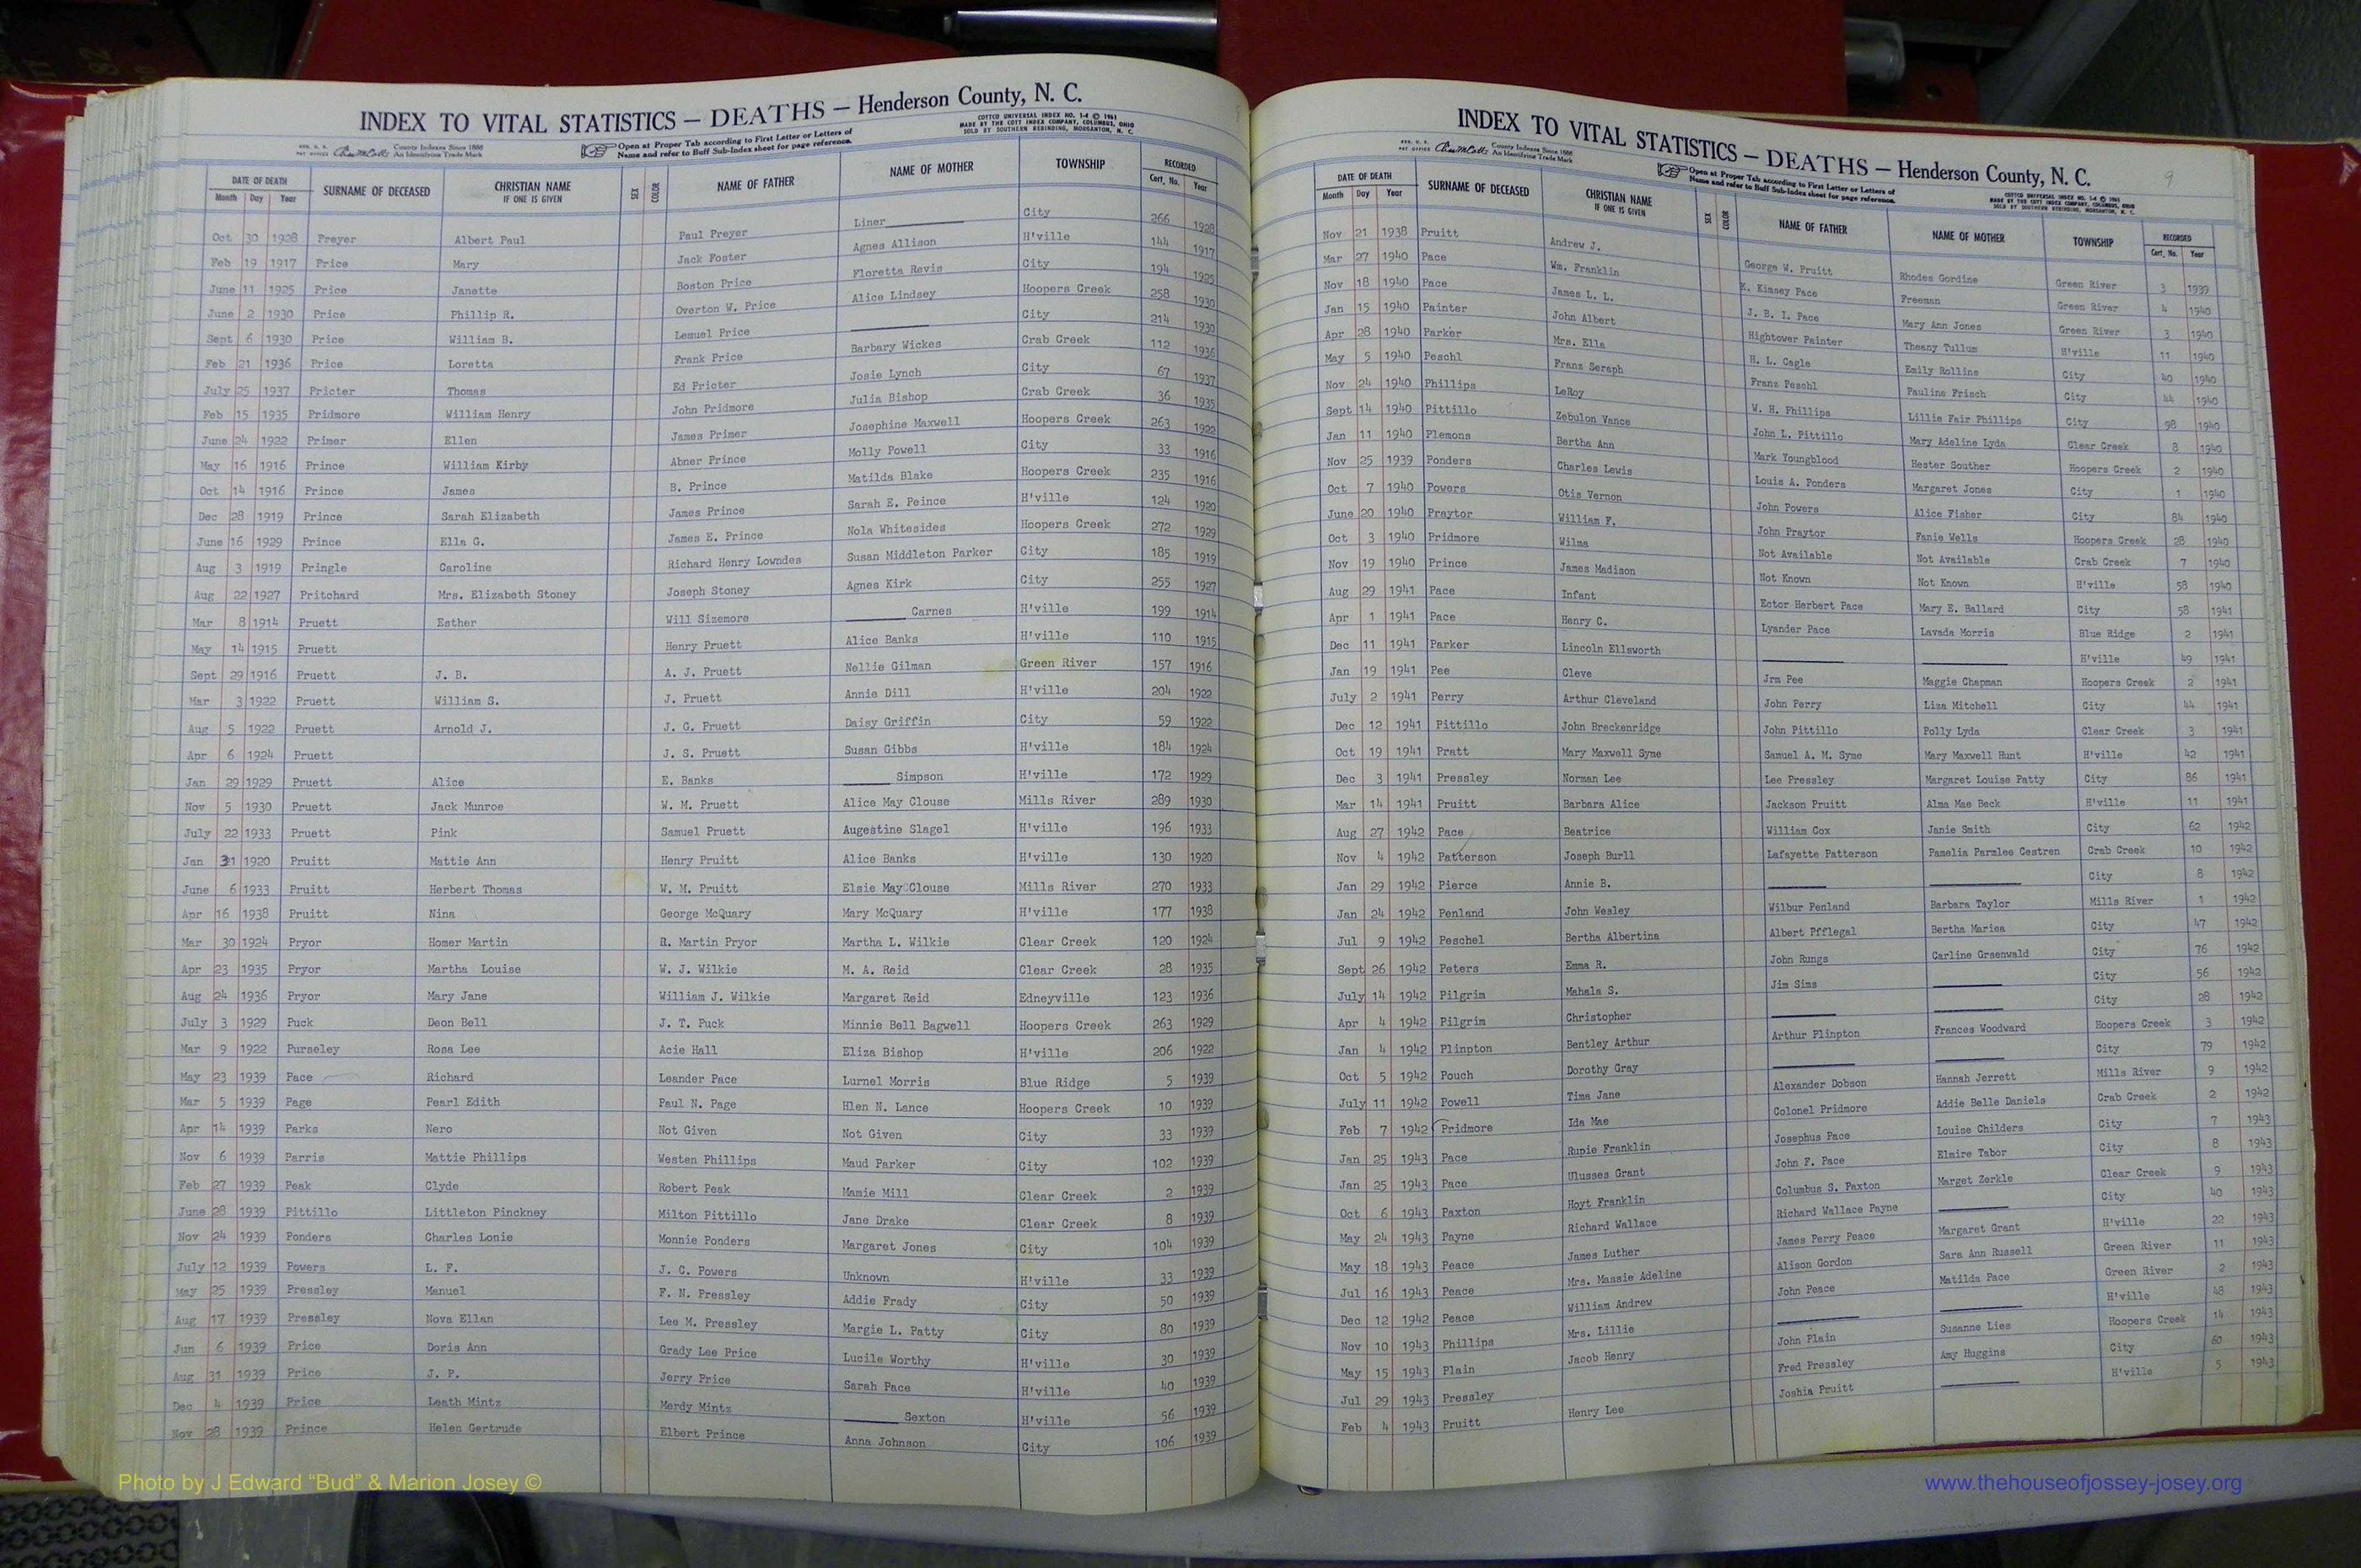 INDEX TO VITAL STATISTICS — DEATHS — Henderson County, N. C.
COTTCO UNIVERSAL INDEX NO. 1-4 © 1961
MADE BY THE COTT INDEX COMPANY, COLUMBUS, OHIO
SOLD BY SOUTHERN REBINDING, MORGANTON, N. C.
County Indexes Since 1888
An Identifying Trade Mark
Open at Proper Tab according to First Letter or Letters of
Name and refer to Buff Sub-Index sheet for page reference.
DATE OF DEATH Month Day Year SURNAME OF DECEASED CHRISTIAN NAME IF ONE IS GIVEN SEX COLOR NAME OF FATHER NAME OF MOTHER TOWNSHIP RECORDED Cert. No. Year
Oct 30 1928 Preyer Albert Paul Paul Preyer Liner City 266 1928
Feb 19 1917 Price Mary Jack Foster Agnes Allison H'ville 144 1917
June 11 1925 Price Janette Boston Price Floretta Revis City 194 1925
June 2 1930 Price Phillip R. Overton W. Price Alice Lindsey Hoopers Creek 258 1930
Sept 6 1930 Price William B. Lemuel Price City 214 1930
Feb 21 1936 Price Loretta Frank Price Barbary Wickes Crab Creek 112 1936
July 25 1937 Pricter Thomas Ed Pricter Josie Lynch City 67 1937
Feb 15 1935 Pridmore William Henry John Pridmore Julia Bishop Crab Creek 36 1935
June 24 1922 Primer Ellen James Primer Josephine Maxwell Hoopers Creek 263 1922
May 16 1916 Prince William Kirby Abner Prince Molly Powell City 33 1916
Oct 14 1916 Prince James B. Prince Matilda Blake Hoopers Creek 235 1916
Dec 28 1919 Prince Sarah Elizabeth James Prince Sarah E. Peince H'ville 124 1920
June 16 1929 Prince Ella G. James E. Prince Nola Whitesides Hoopers Creek 272 1929
Aug 3 1919 Pringle Caroline Richard Henry Lowndes Susan Middleton Parker City 185 1919
Aug 22 1927 Pritchard Mrs. Elizabeth Stoney Joseph Stoney Agnes Kirk City 255 1927
Mar 8 1914 Pruett Esther Will Sizemore Carnes H'ville 199 1914
May 14 1915 Pruett Henry Pruett Alice Banks H'ville 110 1915
Sept 29 1916 Pruett J. B. A. J. Pruett Nellie Gilman Green River 157 1916
Mar 3 1922 Pruett William S. J. Pruett Annie Dill H'ville 204 1922
Aug 5 1922 Pruett Arnold J. J. G. Pruett Daisy Griffin City 59 1922
Apr 6 1924 Pruett J. S. Pruett Susan Gibbs H'ville 184 1924
Jan 29 1929 Pruett Alice E. Banks Simpson H'ville 172 1929
Nov 5 1930 Pruett Jack Munroe W. M. Pruett Alice May Clouse Mills River 289 1930
July 22 1933 Pruett Pink Samuel Pruett Augestine Slagel H'ville 196 1933
Jan 31 1920 Pruitt Mattie Ann Henry Pruitt Alice Banks H'ville 130 1920
June 6 1933 Pruitt Herbert Thomas W. M. Pruitt Elsie May Clouse Mills River 270 1933
Apr 16 1938 Pruitt Nina George McQuary Mary McQuary H'ville 177 1938
Mar 30 1924 Pryor Homer Martin R. Martin Pryor Martha L. Wilkie Clear Creek 120 1924
Apr 23 1935 Pryor Martha Louise W. J. Wilkie M. A. Reid Clear Creek 28 1935
Aug 24 1936 Pryor Mary Jane William J. Wilkie Margaret Reid Edneyville 123 1936
July 3 1929 Puck Deon Bell J. T. Puck Minnie Bell Bagwell Hoopers Creek 263 1929
Mar 9 1922 Purseley Rosa Lee Acie Hall Eliza Bishop H'ville 206 1922
May 23 1939 Pace Richard Leander Pace Lurnel Morris Blue Ridge 5 1939
Mar 5 1939 Page Pearl Edith Paul N. Page Hlen N. Lance Hoopers Creek 10 1939
Apr 14 1939 Parks Nero Not Given Not Given City 33 1939
Nov 6 1939 Parris Mattie Phillips Westen Phillips Maud Parker City 102 1939
Feb 27 1939 Peak Clyde Robert Peak Mamie Mill Clear Creek 2 1939
June 28 1939 Pittillo Littleton Pinckney Milton Pittillo Jane Drake Clear Creek 8 1939
Nov 24 1939 Ponders Charles Lonie Monnie Ponders Margaret Jones City 104 1939
July 12 1939 Powers L. F. J. C. Powers Unknown H'ville 33 1939
May 25 1939 Pressley Manuel F. N. Pressley Addie Frady City 50 1939
Aug 17 1939 Pressley Nova Ellan Lee M. Pressley Margie L. Patty City 80 1939
Jun 6 1939 Price Doris Ann Grady Lee Price Lucile Worthy H'ville 30 1939
Aug 31 1939 Price J. P. Jerry Price Sarah Pace H'ville 40 1939
Dec 4 1939 Price Leath Mintz Merdy Mintz Sexton H'ville 56 1939
Nov 28 1939 Prince Helen Gertrude Elbert Prince Anna Johnson City 106 1939
INDEX TO VITAL STATISTICS — DEATHS — Henderson County, N. C.
9
COTTCO UNIVERSAL INDEX NO. 1-4 © 1961
MADE BY THE COTT INDEX COMPANY, COLUMBUS, OHIO
SOLD BY SOUTHERN REBINDING, MORGANTON, N. C.
County Indexes Since 1888
An Identifying Trade Mark
Open at Proper Tab according to First Letter or Letters of
Name and refer to Buff Sub-Index sheet for page reference.
DATE OF DEATH Month Day Year SURNAME OF DECEASED CHRISTIAN NAME IF ONE IS GIVEN SEX COLOR NAME OF FATHER NAME OF MOTHER TOWNSHIP RECORDED Cert. No. Year
Nov 21 1938 Pruitt Andrew J. George W. Pruitt Rhodes Gordine Green River 3 1939
Mar 27 1940 Pace Wm. Franklin K. Kimsey Pace Freeman Green River 4 1940
Nov 18 1940 Pace James L. L. J. B. I. Pace Mary Ann Jones Green River 3 1940
Jan 15 1940 Painter John Albert Hightower Painter Theany Tullum H'ville 11 1940
Apr 28 1940 Parker Mrs. Ella H. L. Cagle Emily Rollins City 40 1940
May 5 1940 Peschl Franz Seraph Franz Peschl Pauline Frisch City 44 1940
Nov 24 1940 Phillips LeRoy W. H. Phillips Lillie Fair Phillips City 98 1940
Sept 14 1940 Pittillo Zebulon Vance John L. Pittillo Mary Adeline Lyda Clear Creek 8 1940
Jan 11 1940 Plemons Bertha Ann Mark Youngblood Hester Souther Hoopers Creek 2 1940
Nov 25 1939 Ponders Charles Lewis Louis A. Ponders Margaret Jones City 1 1940
Oct 7 1940 Powers Otis Vernon John Powers Alice Fisher City 84 1940
June 20 1940 Praytor William F. John Praytor Fanie Wells Hoopers Creek 28 1940
Oct 3 1940 Pridmore Wilma Not Available Not Available Crab Creek 7 1940
Nov 19 1940 Prince James Madison Not Known Not Known H'ville 58 1940
Aug 29 1941 Pace Infant Ector Herbert Pace Mary E. Ballard City 58 1941
Apr 1 1941 Pace Henry C. Lyander Pace Lavada Morris Blue Ridge 2 1941
Dec 11 1941 Parker Lincoln Ellsworth H'ville 49 1941
Jan 19 1941 Pee Cleve Jrm Pee Maggie Chapman Hoopers Creek 2 1941
July 2 1941 Perry Arthur Cleveland John Perry Liza Mitchell City 44 1941
Dec 12 1941 Pittillo John Breckenridge John Pittillo Polly Lyda Clear Creek 3 1941
Oct 19 1941 Pratt Mary Maxwell Syme Samuel A. M. Syme Mary Maxwell Hunt H'ville 42 1941
Dec 3 1941 Pressley Norman Lee Lee Pressley Margaret Louise Patty City 86 1941
Mar 14 1941 Pruitt Barbara Alice Jackson Pruitt Alma Mae Beck H'ville 11 1941
Aug 27 1942 Pace Beatrice William Cox Janie Smith City 62 1942
Nov 4 1942 Patterson Joseph Burll Lafayette Patterson Pamelia Parmlee Cestren Crab Creek 10 1942
Jan 29 1942 Pierce Annie B. City 8 1942
Jan 24 1942 Penland John Wesley Wilbur Penland Barbara Taylor Mills River 1 1942
Jul 9 1942 Peschel Bertha Albertina Albert Pfflegal Bertha Mariea City 47 1942
Sept 26 1942 Peters Emma R. John Rungs Carline Grsenwald City 76 1942
July 14 1942 Pilgrim Mahala S. Jim Sims City 56 1942
Apr 4 1942 Pilgrim Christopher City 28 1942
Jan 4 1942 Plinpton Bentley Arthur Arthur Plinpton Frances Woodward Hoopers Creek 3 1942
Oct 5 1942 Pouch Dorothy Gray City 79 1942
July 11 1942 Powell Tima Jane Alexander Dobson Hannah Jerrett Mills River 9 1942
Feb 7 1942 Pridmore Ida Mae Colonel Pridmore Addie Belle Daniels Crab Creek 2 1942
Jan 25 1943 Pace Rupie Franklin Josephus Pace Louise Childers City 7 1943
Jan 25 1943 Pace Ulusses Grant John F. Pace Elmire Tabor City 8 1943
Oct 6 1943 Paxton Hoyt Franklin Columbus S. Paxton Marget Zerkle Clear Creek 9 1943
May 24 1943 Payne Richard Wallace Richard Wallace Payne City 40 1943
May 18 1943 Peace James Luther James Perry Peace Margaret Grant H'ville 22 1943
Jul 16 1943 Peace Mrs. Massie Adeline Alison Gordon Sara Ann Russell Green River 11 1943
Dec 12 1942 Peace William Andrew John Peace Matilda Pace Green River 2 1943
Nov 10 1943 Phillips Mrs. Lillie H'ville 48 1943
May 15 1943 Plain Jacob Henry John Plain Susanne Lies Hoopers Creek 14 1943
Jul 29 1943 Pressley Fred Pressley Amy Huggins City 60 1943
Feb 4 1943 Pruitt Henry Lee Joshia Pruitt H'ville 5 1943
Photo by J Edward “Bud” & Marion Josey ©
www.thehouseofjossey-josey.org